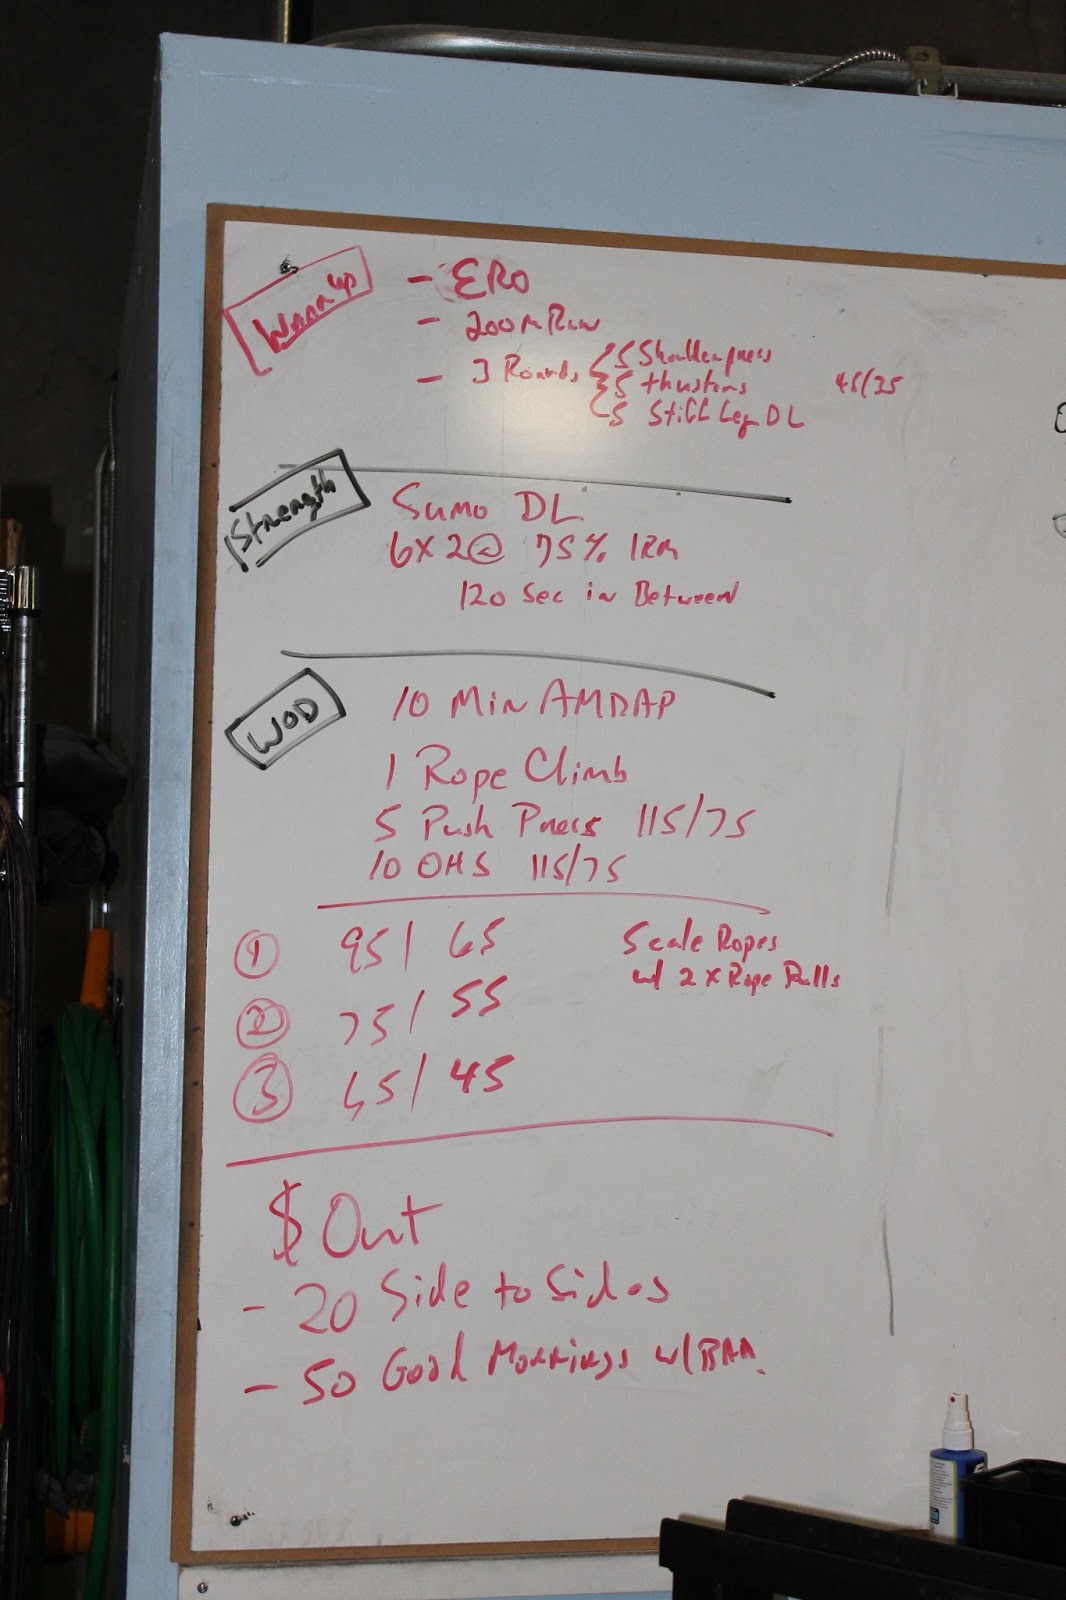 Warm up
- ERO
- 200m Run
- 3 Rounds { 5 Shoulder press
5 thrusters 45/35
5 Stiff Leg DL
Strength
Sumo DL
6X2@ 75% 1RM
120 Sec in Between
WOD
10 Min AMRAP
1 Rope Climb
5 Push Press 115/75
10 OHS 115/75
1 95/65
2 75/55
3 65/45
Scale Ropes
w/ 2 x Rope Pulls
$ Out
- 20 Side to Sides
- 50 Good Mornings w/